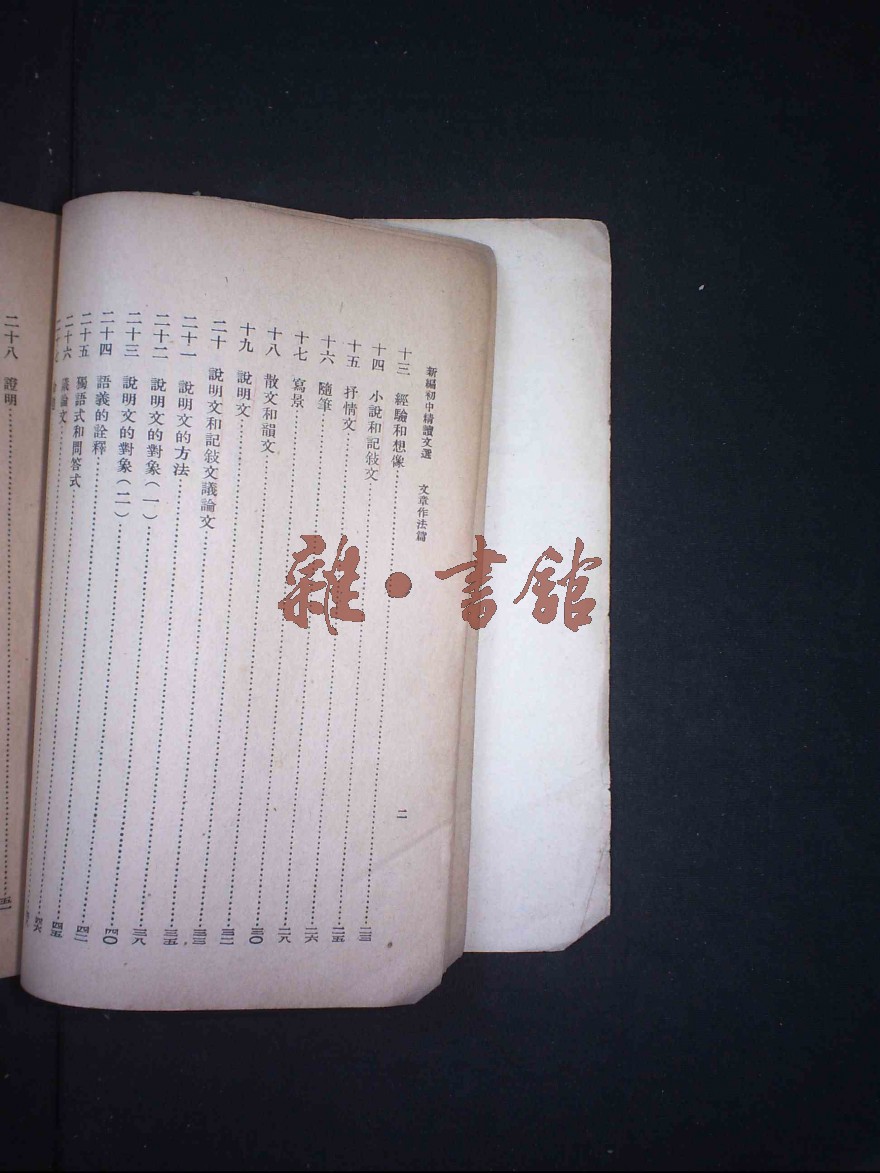 新編初中精讀文選 文章作法篇
二
十三 經驗和想像……二三
十四 小說和記敍文……二五
十五 抒情文……二六
十六 隨筆……二八
十七 寫景……三〇
十八 散文和韻文……三二
十九 說明文……三三
二十 說明文和記敍文議論文……三五
二十一 說明文的方法……三八
二十二 說明文的對象（一）……四〇
二十三 說明文的對象（二）……四二
二十四 語義的詮釋……四五
二十五 獨語式和問答式……四六
二十六 議論文……
二十七
二十八 證明……五一
雜·書館